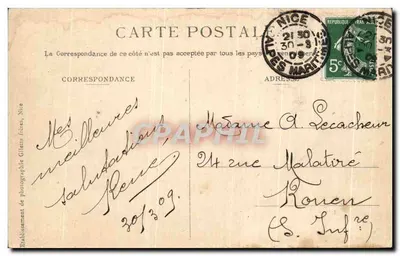 CARTE POSTALE
La Correspondance de ce côté n'est pas acceptée par tous les pays
CORRESPONDANCE
ADRESSE
NICE
21 50
30 - 3
09
ALPES MARITIMES
NICE
ALPES MARIT
5c
Mes
meilleures
salutations
René
30/3 09.
Madame A. Lécacheur
24 rue Malatiré
Rouen
(S. Infre)
Etablissement de photographie Giletta frères, Nice
CPARAMA